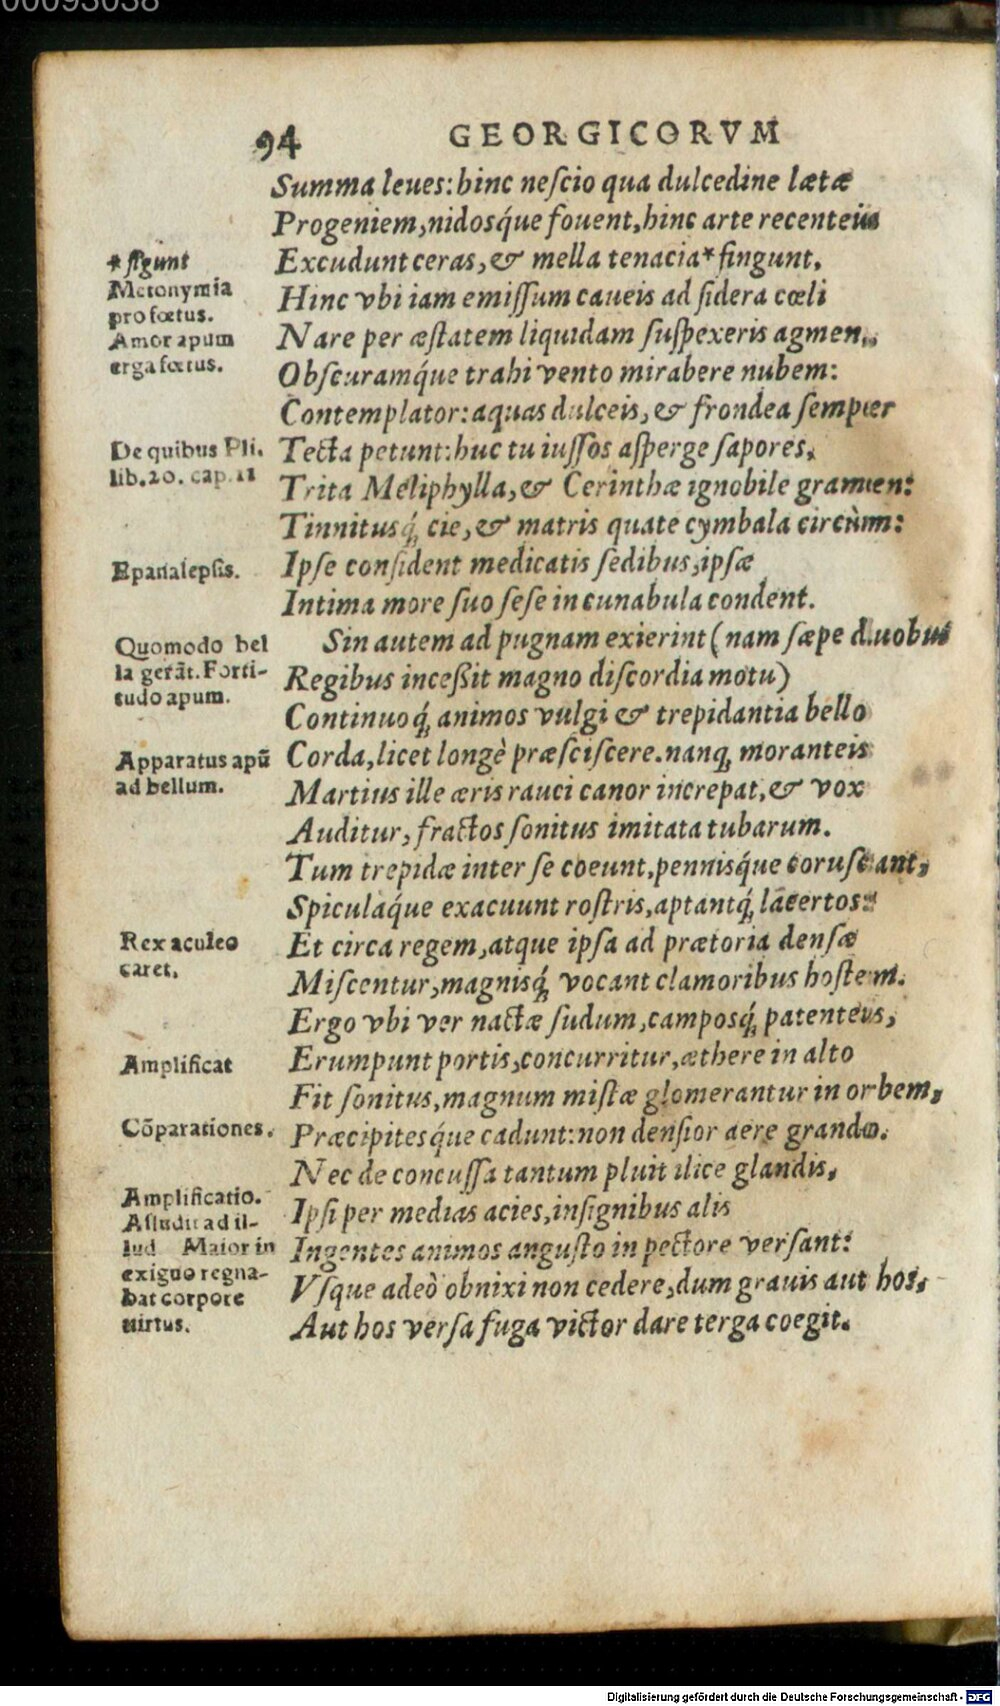 00093038
94 GEORGICORVM
Summa leues: hinc neſcio qua dulcedine lætæ
Progeniem, nidosq́ue fouent, hinc arte recenteis
* figunt
Excudunt ceras, & mella tenacia* fingunt.
Metonymia
Hinc vbi iam emiſſum caueis ad ſidera cœli
pro fœtus.
Nare per æſtatem liquidam ſuſpexeris agmen,
Amor apum
erga fœtus.
Obſcuramq́ue trahi vento mirabere nubem:
Contemplator: aquas dulceis, & frondea ſemper
De quibus Pli.
Tecta petunt: huc tu iuſſos aſperge ſapores,
lib.20. cap.11
Trita Meliphylla, & Cerinthæ ignobile gramen:
Tinnitusq́; cie, & matris quate cymbala circùm:
Epanalepſis.
Ipſe conſident medicatis ſedibus, ipſæ
Intima more ſuo ſeſe in cunabula condent.
Quomodo bel
Sin autem ad pugnam exierint (nam ſæpe duobus
la gerãt. Forti-
Regibus inceßit magno diſcordia motu)
tudo apum.
Continuoq́; animos vulgi & trepidantia bello
Apparatus apũ
Corda, licet longè præſciſcere. nanq; moranteis
ad bellum.
Martius ille æris rauci canor increpat, & vox
Auditur, fractos ſonitus imitata tubarum.
Tum trepidæ inter ſe coeunt, pennisq́ue coruſcant,
Spiculaq́ue exacuunt roſtris, aptantq́; lacertos:
Rex aculeo
Et circa regem, atque ipſa ad prætoria denſæ
caret.
Miſcentur, magnisq́; vocant clamoribus hoſtem.
Ergo vbi ver nactæ ſudum, camposq́; patenteis,
Amplificat
Erumpunt portis, concurritur, æthere in alto
Fit ſonitus, magnum miſtæ glomerantur in orbem,
Cõparationes.
Præcipitesq́ue cadunt: non denſior aere grando.
Nec de concuſſa tantum pluit ilice glandis,
Amplificatio.
Ipſi per medias acies, inſignibus alis
Alludit ad il-
lud Maior in
Ingentes animos anguſto in pectore verſant:
exiguo regna-
Vſque adeò obnixi non cedere, dum grauis aut hos,
bat corpore
uirtus.
Aut hos verſa fuga victor dare terga coegit.
Digitalisierung gefördert durch die Deutsche Forschungsgemeinschaft - DFG